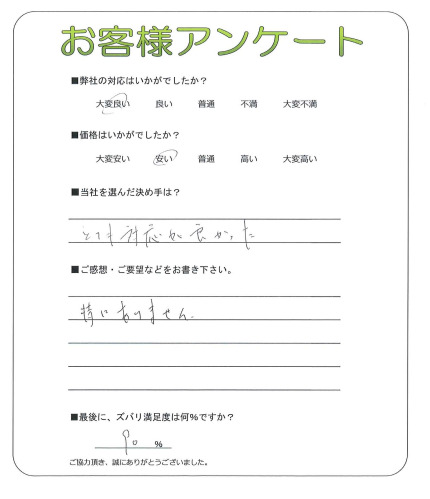 お客様アンケート
■弊社の対応はいかがでしたか？
大変良い 良い 普通 不満 大変不満
■価格はいかがでしたか？
大変安い 安い 普通 高い 大変高い
■当社を選んだ決め手は？
とても対応が良かった
■ご感想・ご要望などをお書き下さい。
特にありません.
■最後に、ズバリ満足度は何%ですか？
90 %
ご協力頂き、誠にありがとうございました。